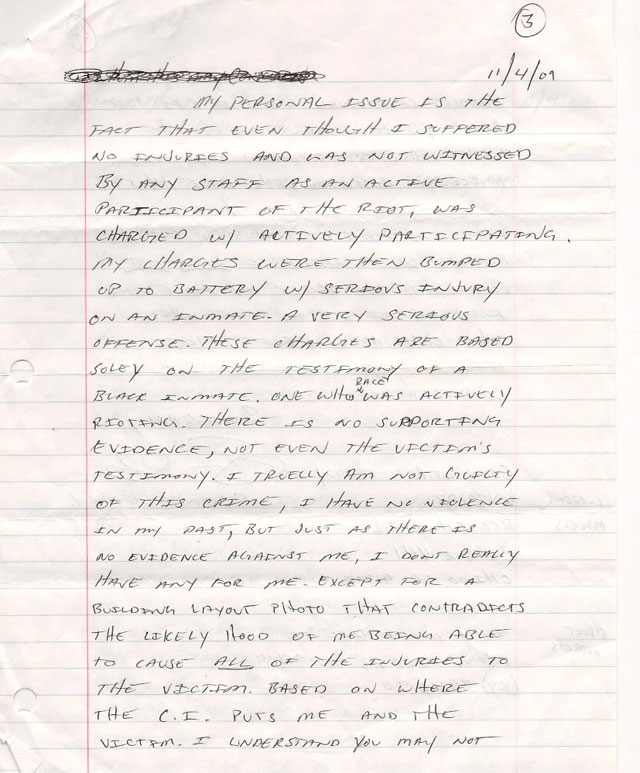 3
11/4/09
MY PERSONAL ISSUE IS THE
FACT THAT EVEN THOUGH I SUFFERED
NO INJURIES AND WAS NOT WITNESSED
BY ANY STAFF AS AN ACTIVE
PARTICIPANT OF THE RIOT, WAS
CHARGED W/ ACTIVELY PARTICIPATING.
MY CHARGES WERE THEN BUMPED
UP TO BATTERY W/ SERIOUS INJURY
ON AN INMATE. A VERY SERIOUS
OFFENSE. THESE CHARGES ARE BASED
SOLEY ON THE TESTIMONY OF A
BLACK INMATE. ONE WHO RACE WAS ACTIVELY
RIOTING. THERE IS NO SUPPORTING
EVIDENCE, NOT EVEN THE VICTIM'S
TESTIMONY. I TRUELLY AM NOT GUILTY
OF THIS CRIME, I HAVE NO VIOLENCE
IN MY PAST, BUT JUST AS THERE IS
NO EVIDENCE AGAINST ME, I DONT REALLY
HAVE ANY FOR ME. EXCEPT FOR A
BUILDING LAYOUT PHOTO THAT CONTRADICTS
THE LIKELY HOOD OF ME BEING ABLE
TO CAUSE ALL OF THE INJURIES TO
THE VICTIM. BASED ON WHERE
THE C.I. PUTS ME AND THE
VICTIM. I UNDERSTAND YOU MAY NOT